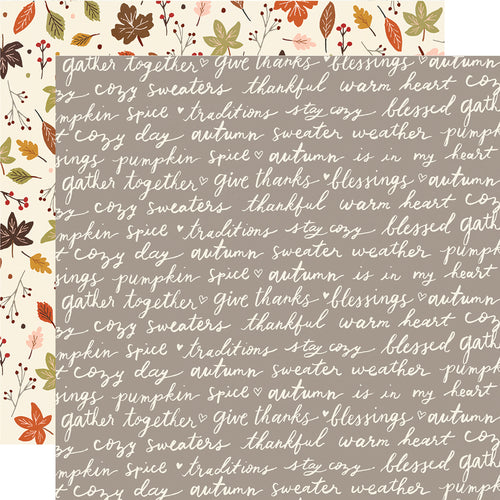 gather together ♡ give thanks ♡ blessings ♡ autumn
zy cozy sweaters thankful warm heart c
mpkin spice ♥ traditions stay cozy blessed gat
t cozy day autumn sweater weather pump
ssings pumpkin spice ♡ autumn is in my heart
gather together ♡ give thanks ♡ blessings ♡ autumn
zy cozy sweaters thankful warm heart c
mpkin spice ♥ traditions stay cozy blessed gat
t cozy day autumn sweater weather pump
ssings pumpkin spice ♡ autumn is in my heart
gather together ♡ give thanks ♡ blessings ♡ autumn
cozy sweaters thankful warm heart c
mpkin spice ♥ traditions stay cozy blessed gat
t cozy day autumn sweater weather pump
ssings pumpkin spice ♡ autumn is in my heart
gather together ♡ give thanks ♡ blessings ♡ autumn
cozy sweaters thankful warm heart c
mpkin spice ♥ traditions stay cozy blessed gat
cozy day autumn sweater weather pum